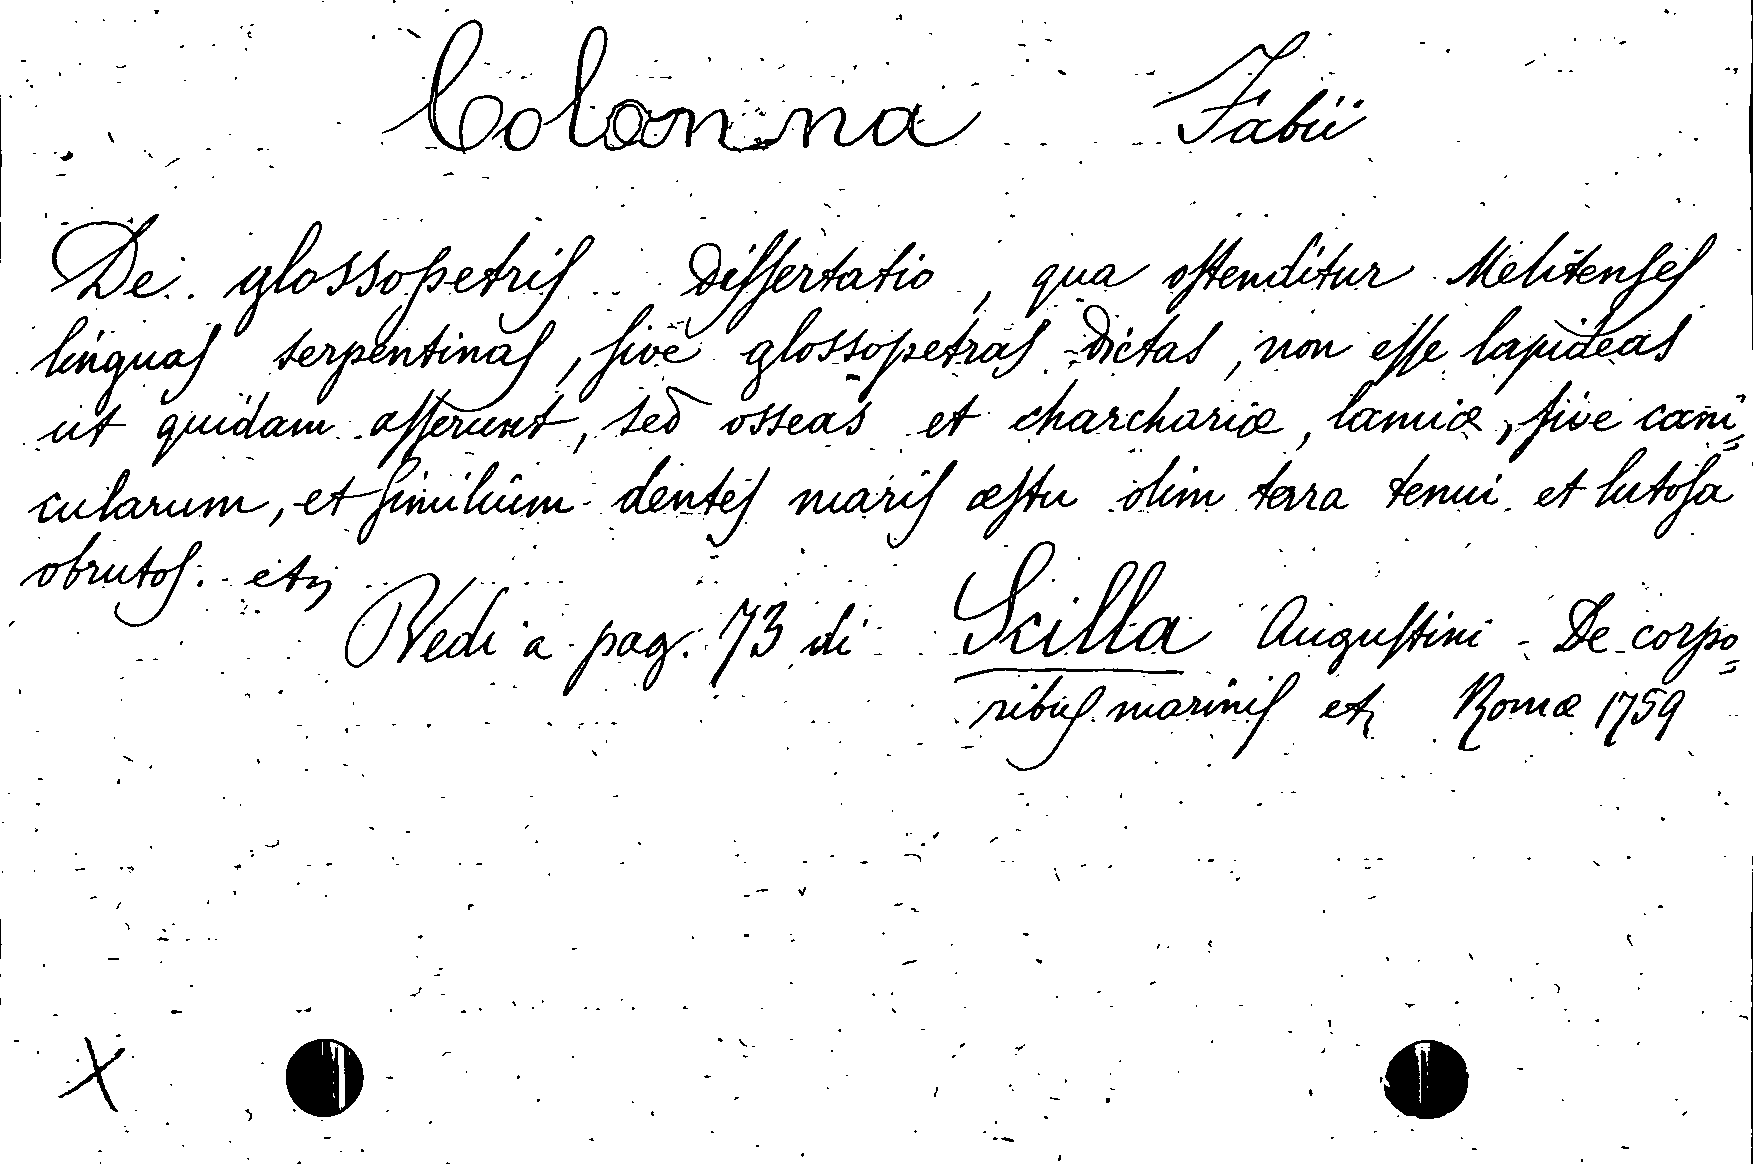 Colonna Fabii
De glossopetris Dissertatio, qua ostenditur Melitenses
linguas serpentinas, sive glossopetras dictas, non esse lapideas
ut quidam asserunt, sed osseas et charchariæ, lamiæ, sive cani=
cularum, et similium dentes maris æstu olim terra tenui et lutosa
obrutos. etc
Vedi a pag. 73 di Scilla Augustini - De corpo=
ribus marinis etc Romæ 1759
X